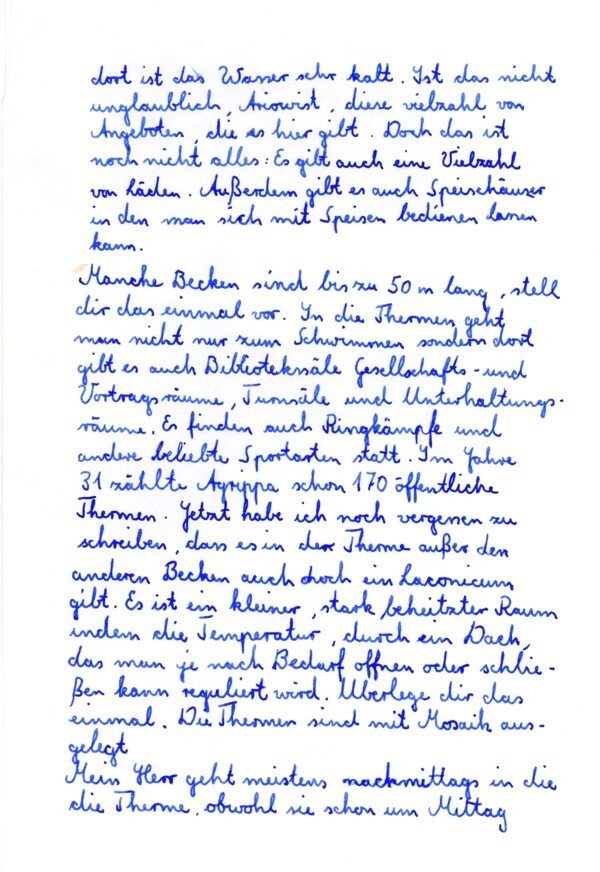 dort ist das Wasser sehr kalt. Ist das nicht
unglaublich, Ariowist, diese vielzahl von
Angeboten, die es hier gibt. Doch das ist
noch nicht alles: Es gibt auch eine Vielzahl
von Läden. Außerdem gibt es auch Speisehäuser
in den man sich mit Speisen bedienen lassen
kann.
Manche Becken sind bis zu 50 m lang, stell
dir das einmal vor. In die Thermen geht
man nicht nur zum Schwimmen sondern dort
gibt es auch Bibliotekssäle Gesellschafts- und
Vortragsräume, Turnsäle und Unterhaltungs-
räume. Es finden auch Ringkämpfe und
andere beliebte Sportarten statt. Im Jahre
31 zählte Agrippa schon 170 öffentliche
Thermen. Jetzt habe ich noch vergessen zu
schreiben, dass es in der Therme außer den
anderen Becken auch noch ein Laconicum
gibt. Es ist ein kleiner, stark beheitzter Raum
indem die Temperatur, durch ein Dach,
das man je nach Bedarf öffnen oder schlie-
ßen kann reguliert wird. Überlege dir das
einmal. Die Thermen sind mit Mosaik aus-
gelegt
Mein Herr geht meistens nachmittags in die
die Therme, obwohl sie schon um Mittag